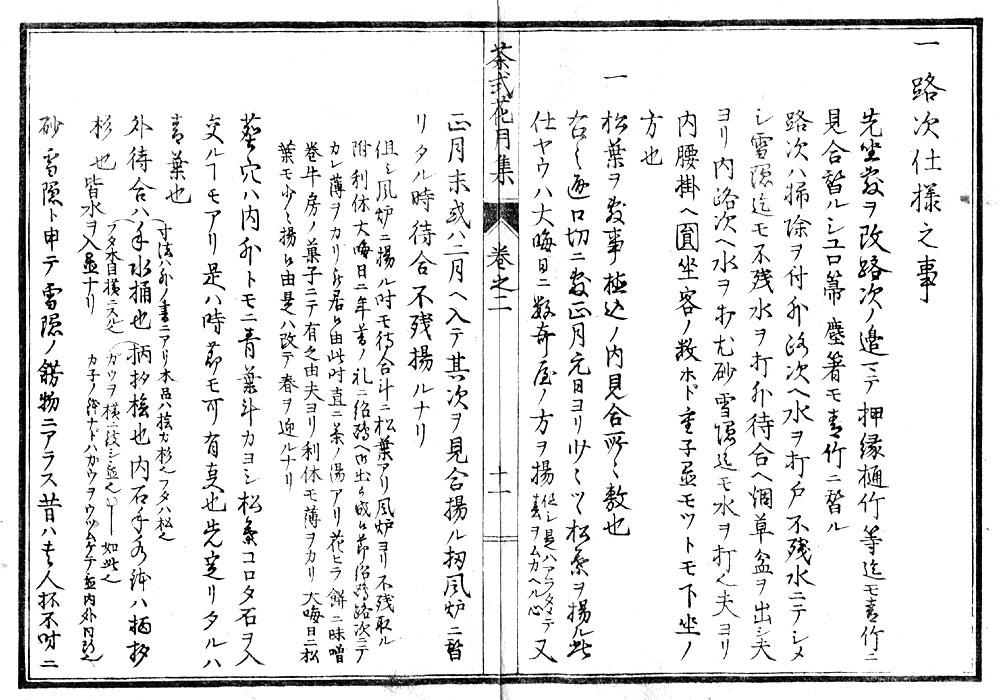 一路次仕様之事
先坐敷ヲ改路次ノ邉マテ押縁樋竹等迄モ青竹ニ
見合替ルシユロ箒塵箸モ青竹ニ替ル
路次ハ掃除ヲ付外路次ヘ水ヲ打戸不残水ニテシメ
シ雪隠迄モ不残水ヲ打外待合ヘ烟草盆ヲ出シ夫
ヨリ内路次ヘ水ヲ打尤砂雪隠迄モ水ヲ打
夫ヨリ
内腰掛ヘ圓坐客ノ数ホド重子置モツトモ下坐ノ
方也
一松葉ヲ敷事極込ノ内見合所々敷也
口切ニ敷正月元日ヨリ少シツヽ松葉ヲ揚ル此
仕ヤウハ大晦日ニ数奇屋ノ方ヲ揚
但シ是ハアラタメテ
春ヲムカヘル心
又
茶式花月集
巻之二
十一
正月末或ハ二月ヘ入テ其次ヲ見合揚ル扨風炉ニ替
リタル時待合不残揚ルナリ
但シ風炉ニ揚ル時モ待合斗ニ松葉アリ風炉ヨリ不残取ル
附利休大晦日ニ年暮ノ礼ニ紹鴎ヘ
紹鴎路次ニテ
カレ薄ヲカリ
由此時直ニ茶ノ湯アリ花ヒラ餅ニ味噌
巻牛房ノ菓子ニテ有之由夫ヨリ利休モ薄ヲカリ大晦日ニ松
葉モ少々揚ル由是ハ改テ春ヲ迎ルナリ
塵穴ハ内外トモニ青葉斗カヨシ松葉コロタ石ヲ入
交ルヿモアリ是ハ時節モ可有
也先定リタルハ
青葉也
外待合ハ手水桶也
寸法外ノ書ニアリ木品ハ桧カ杉
フタハ松
フタ木目横ニスル
柄杓桧也内石手水鉢ハ柄杓
杉也
皆水ヲ入置ナリ
ガウヲ横ニ
如此
砂雪隠ト申テ雪隠ノ餝物ニアラス昔ハ
人抔不時ニ